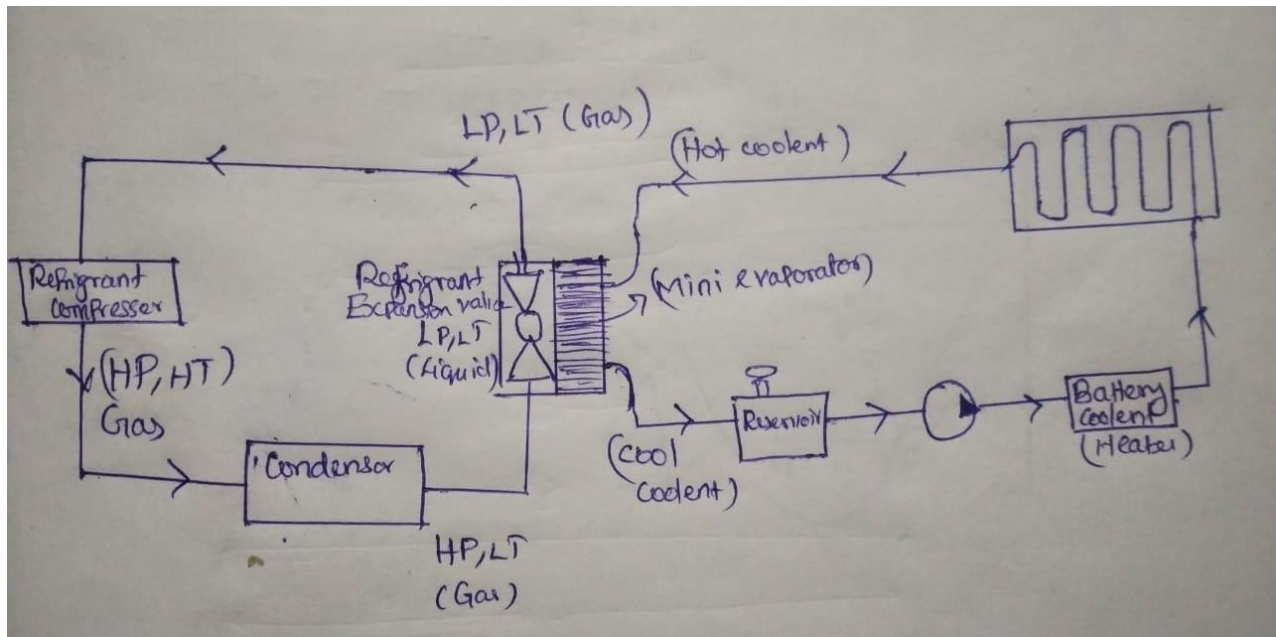 LP, LT (Gas)
(Hot coolent)
Refrigrant
Compresser
Refrigrant
Expansion valve
LP, LT
(Liquid)
(Mini evaporator)
(HP, HT)
Gas
Condensor
HP, LT
(Gas)
(Cool
Coolent)
Reservoir
Battery
Coolent
(Heater)